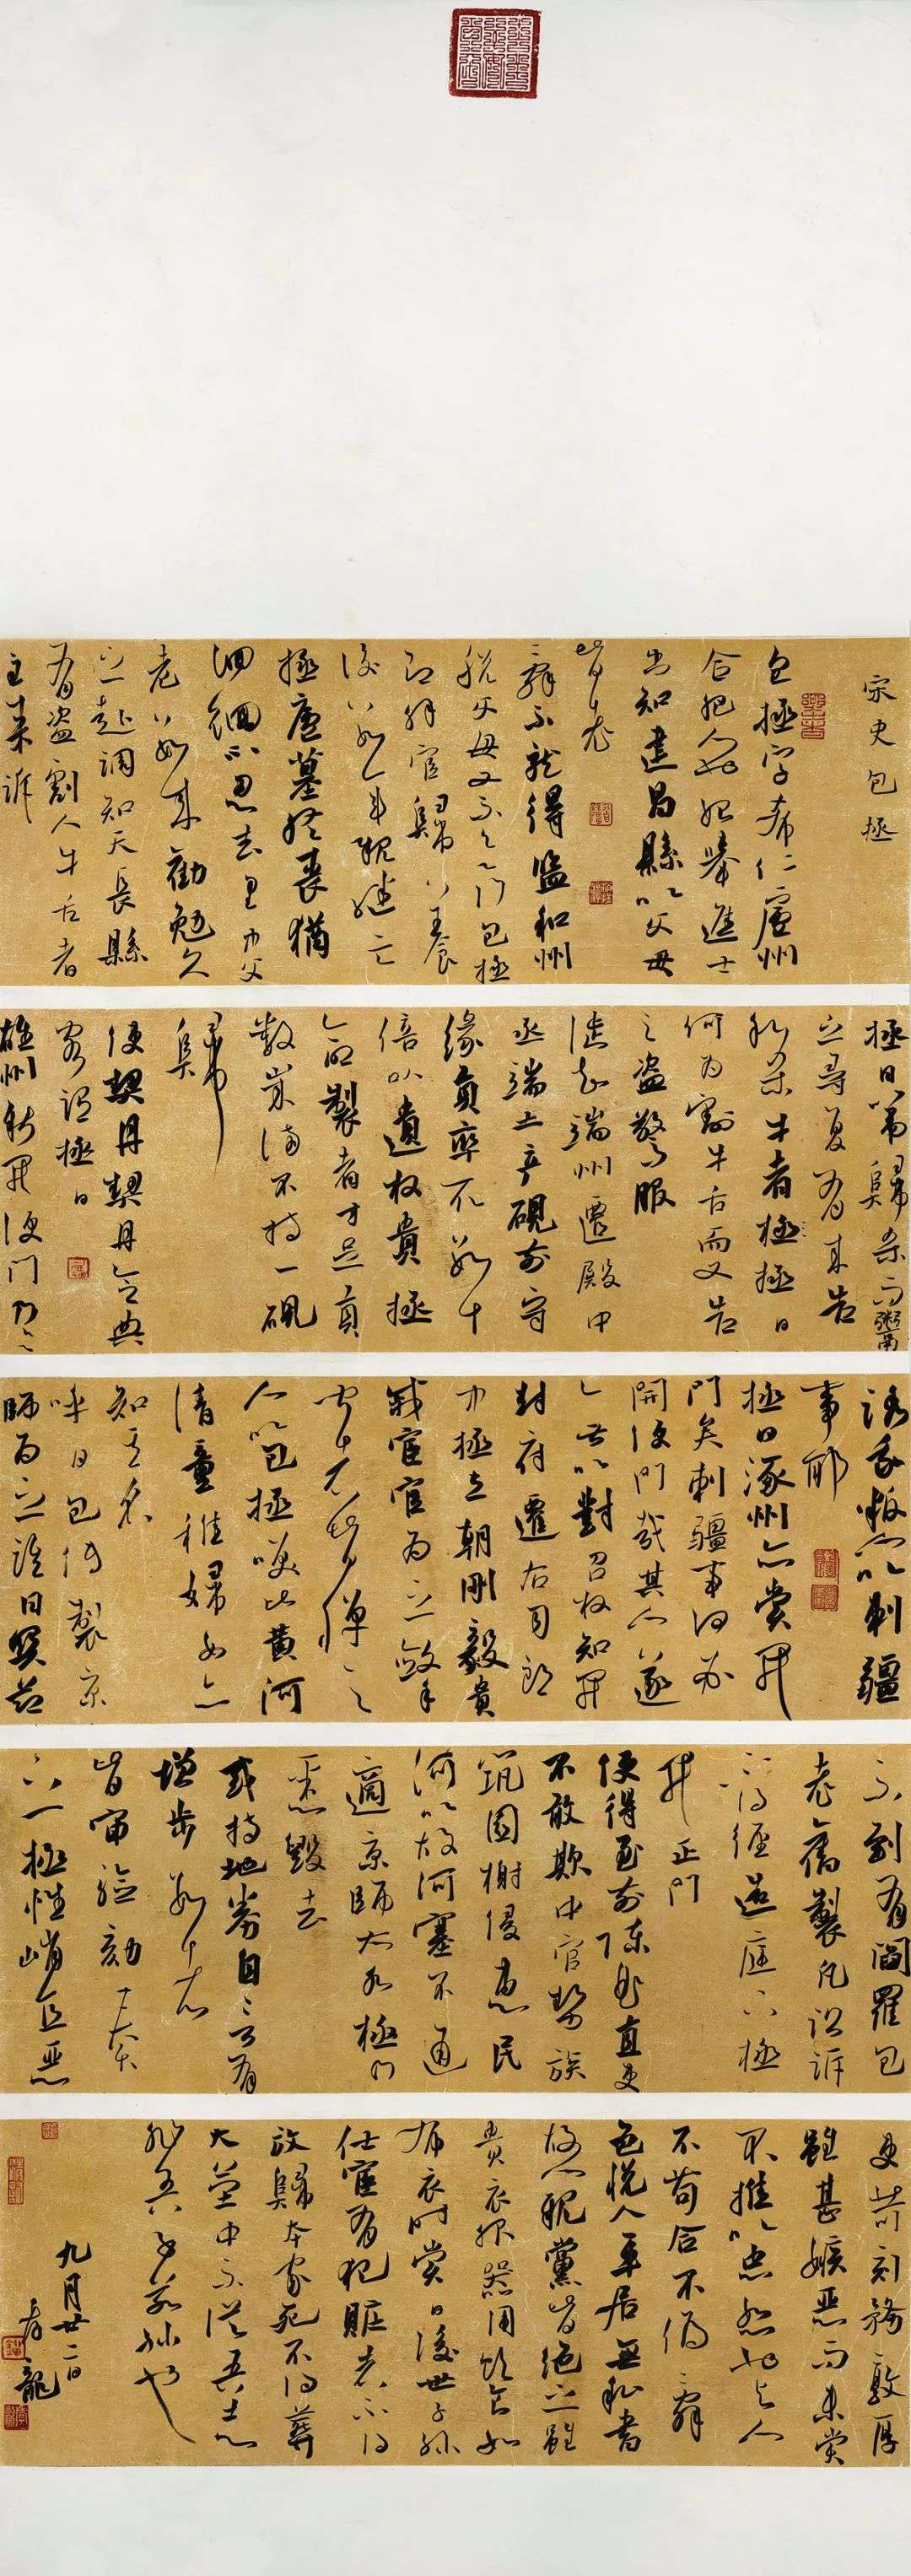 宋史包拯
包拯字希仁廬州
合肥人也始舉進士
出知建昌縣以父母
皆老
辭不就得監和州
稅父母又不欲行包拯
即解官歸養
後數年親繼亡
拯廬墓終喪猶
徊徊不忍去里中父
老數來勸勉久
之赴調知天長縣
有盜割人牛舌者
主來訴
拯曰第歸殺而鬻
之尋复有來告
私殺牛者拯拯曰
何為割牛舌而又告
之盜驚服
徙知端州遷殿中
丞端土產硯前守
緣貢率取數十
倍以遺权貴拯
命製者才足貢
數歲滿不持一硯
歸
使契丹契丹令典
客謂拯曰
雄州新開便門乃欲
誘我叛人以刺疆
事耶
拯曰涿州亦嘗開
門矣刺疆事何必
開便門哉其人遂
無以對召权知開
封府遷右司郎
中拯立朝剛毅貴
戚宦官為之斂手
聞者皆憚之
人以包拯笑比黃河
清童稚婦女亦
知其名
呼曰包待製京
師為之語曰關節
不到有閻羅包
老舊製凡訟訴
不得徑造庭下拯
開正門
使得至前陳曲直吏
不敢欺中官勢族
筑園榭侵惠民
河以故河塞不通
適京師大水拯乃
悉毀去
或持地券自言有
增步數者
皆審驗劾奏
之拯性峭直惡
吏苛刻務敦厚
雖甚嫉惡而未嘗
不推以忠恕也与人
不苟合不偽辭
色悅人平居無私書
故人親黨皆絕之雖
貴衣服器用飲食如
布衣時嘗曰後世子孫
仕宦有犯贓者不得
放歸本家死不得葬
大塋中不從吾志
非吾子若孫也
九月廿二日